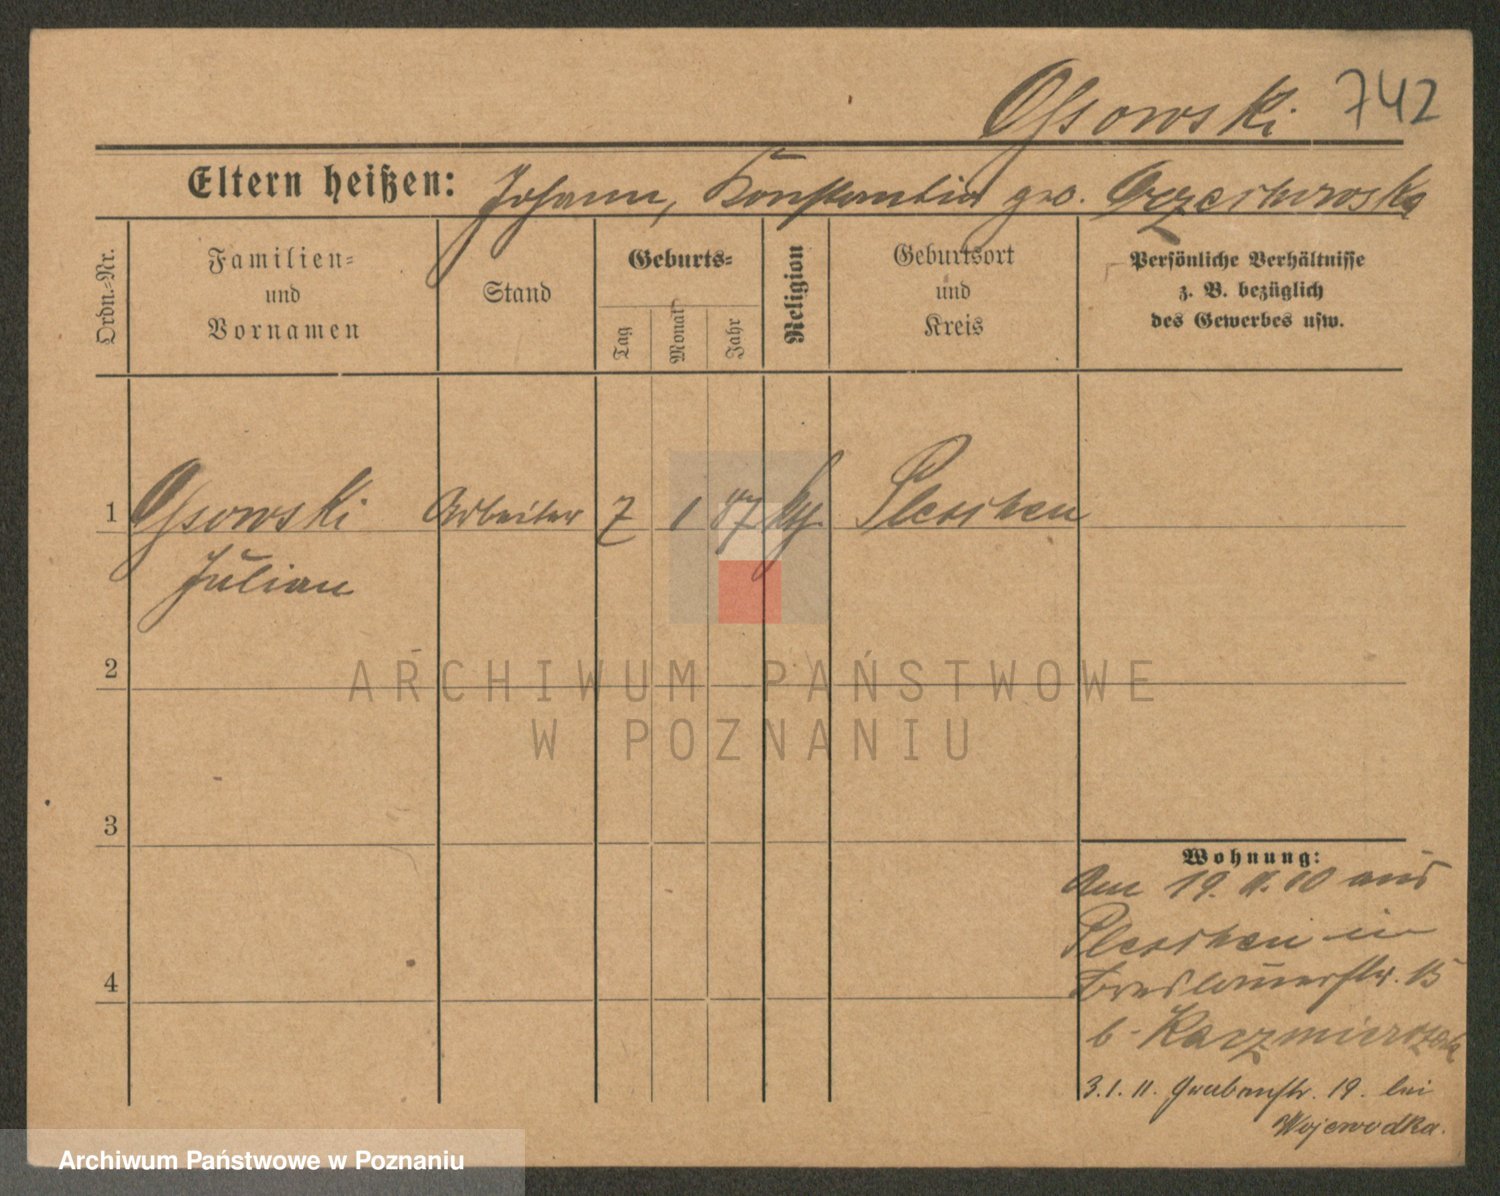 Ossowski 742
Eltern heißen: Johann, Konstantia geb. Orzechowska
Ordn.-Nr.
Familien-
und
Vornamen
Stand
Geburts-
Tag
Monat
Jahr
Religion
Geburtsort
und
Kreis
Persönliche Verhältnisse
z. B. bezüglich
des Gewerbes usw.
1 Ossowski Arbeiter 7 1 87 kath. Pleschen
Julian
2
3
4
Wohnung:
Am 19. 11. 10 aus
Pleschen in
Breslauerstr. 15
b. Kaczmierczak
3.1.11. Grabenstr. 19. bei
Wojewodka.
ARCHIWUM PAŃSTWOWE
W POZNANIU
Archiwum Państwowe w Poznaniu